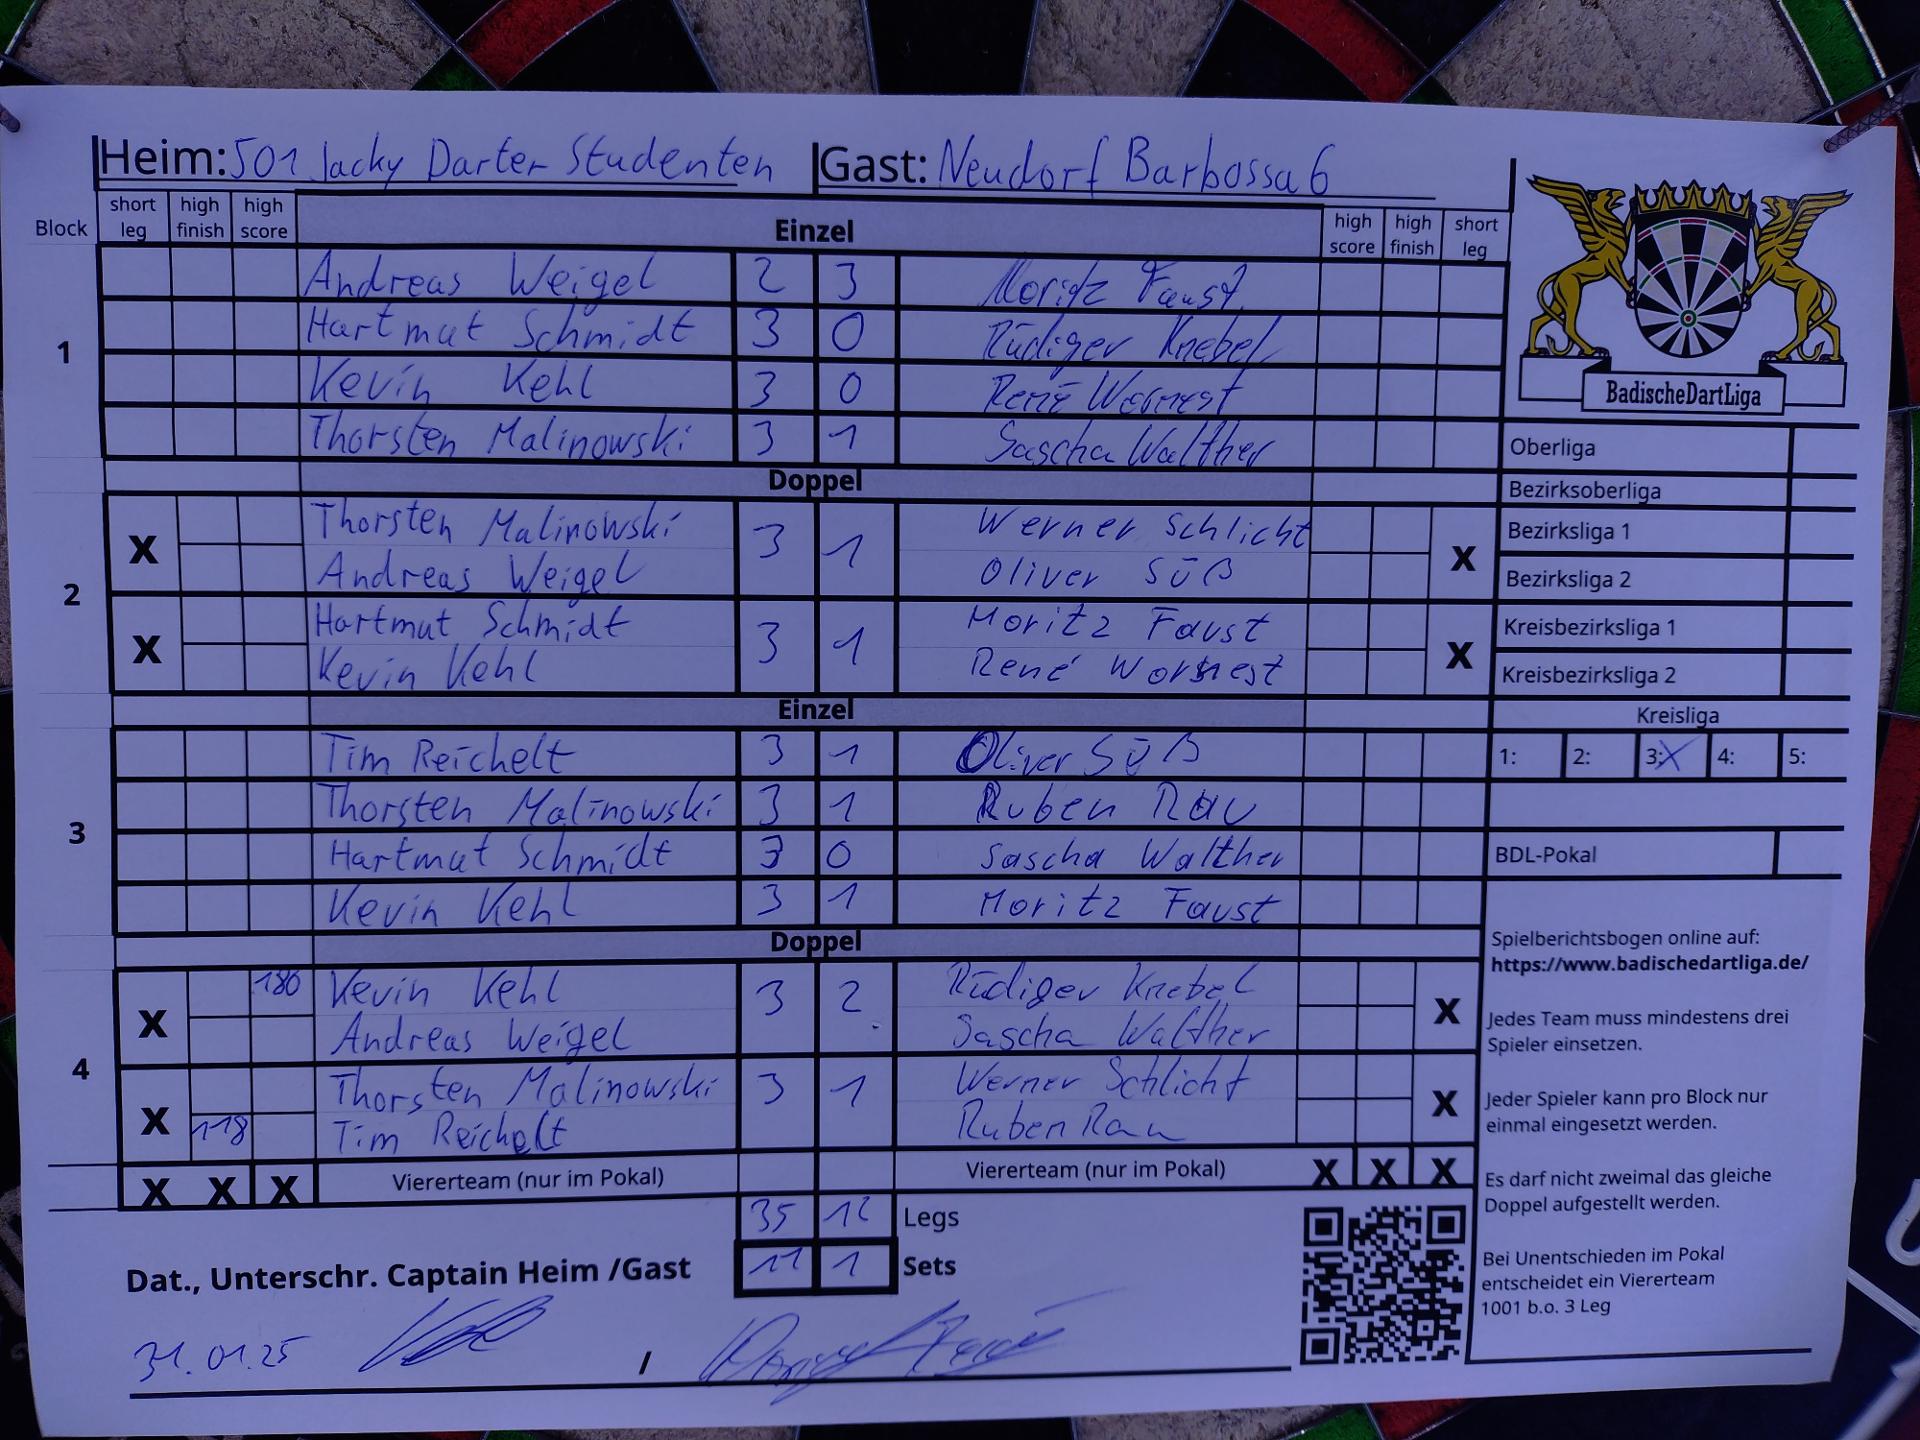 Heim: 501 Jacky Darter Studenten Gast: Neudorf Barbossa 6
Block short leg high finish high score Einzel high score high finish short leg
1
Andreas Weigel 2 3 Moritz Faust
Hartmut Schmidt 3 0 Rüdiger Knebel
Kevin Kehl 3 0 René
Thorsten Malinowski 3 1 Sascha Walther
Doppel
2
X Thorsten Malinowski 3 1 Werner Schlicht X
Andreas Weigel Oliver Süß
X Hartmut Schmidt 3 1 Moritz Faust X
Kevin Kehl René
Einzel
3
Tim Reichelt 3 1 Oliver Süß
Thorsten Malinowski 3 1 Ruben Rau
Hartmut Schmidt 3 0 Sascha Walther
Kevin Kehl 3 1 Moritz Faust
Doppel
4
X 180 Kevin Kehl 3 2 Rüdiger Knebel X
Andreas Weigel Sascha Walther
X Thorsten Malinowski 3 1 Werner Schlicht X
118 Tim Reichelt Ruben Rau
X X X Viererteam (nur im Pokal) Viererteam (nur im Pokal) X X X
35 12 Legs
11 1 Sets
Dat., Unterschr. Captain Heim /Gast
31.01.25 /
BadischeDartLiga
Oberliga
Bezirksoberliga
Bezirksliga 1
Bezirksliga 2
Kreisbezirksliga 1
Kreisbezirksliga 2
Kreisliga
1: 2: 3: X 4: 5:
BDL-Pokal
Spielberichtsbogen online auf:
https://www.badischedartliga.de/
Jedes Team muss mindestens drei
Spieler einsetzen.
Jeder Spieler kann pro Block nur
einmal eingesetzt werden.
Es darf nicht zweimal das gleiche
Doppel aufgestellt werden.
Bei Unentschieden im Pokal
entscheidet ein Viererteam
1001 b.o. 3 Leg